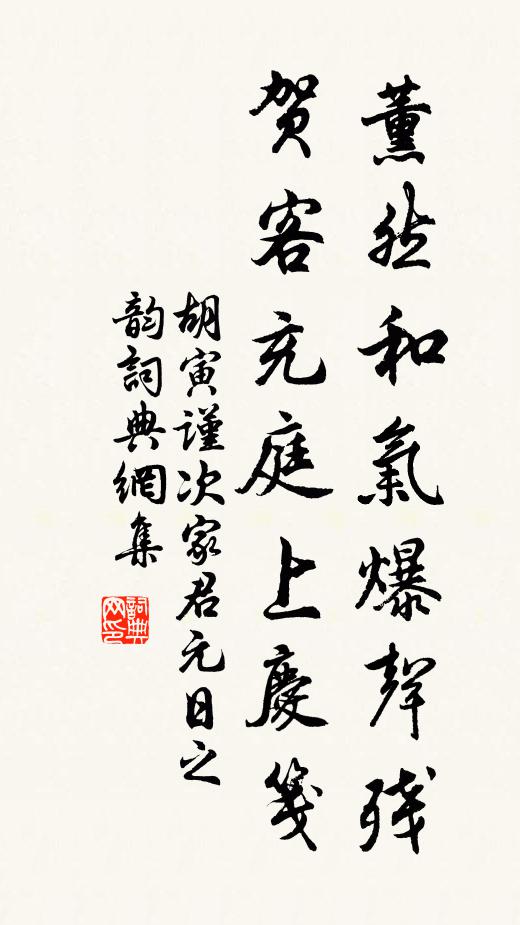 薰然和氣爆聲残
贺客充庭上慶笺
胡寅謹次家君元日之
韵詞典網集
詞典网印